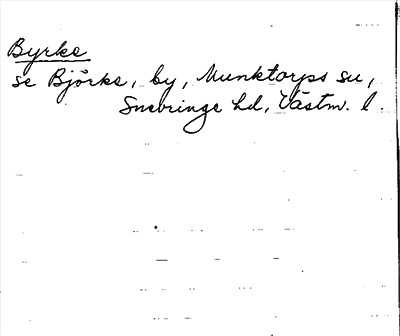 Byrke
se Björke, by, Munktorps su,
Snevringe hd, Västm. l.